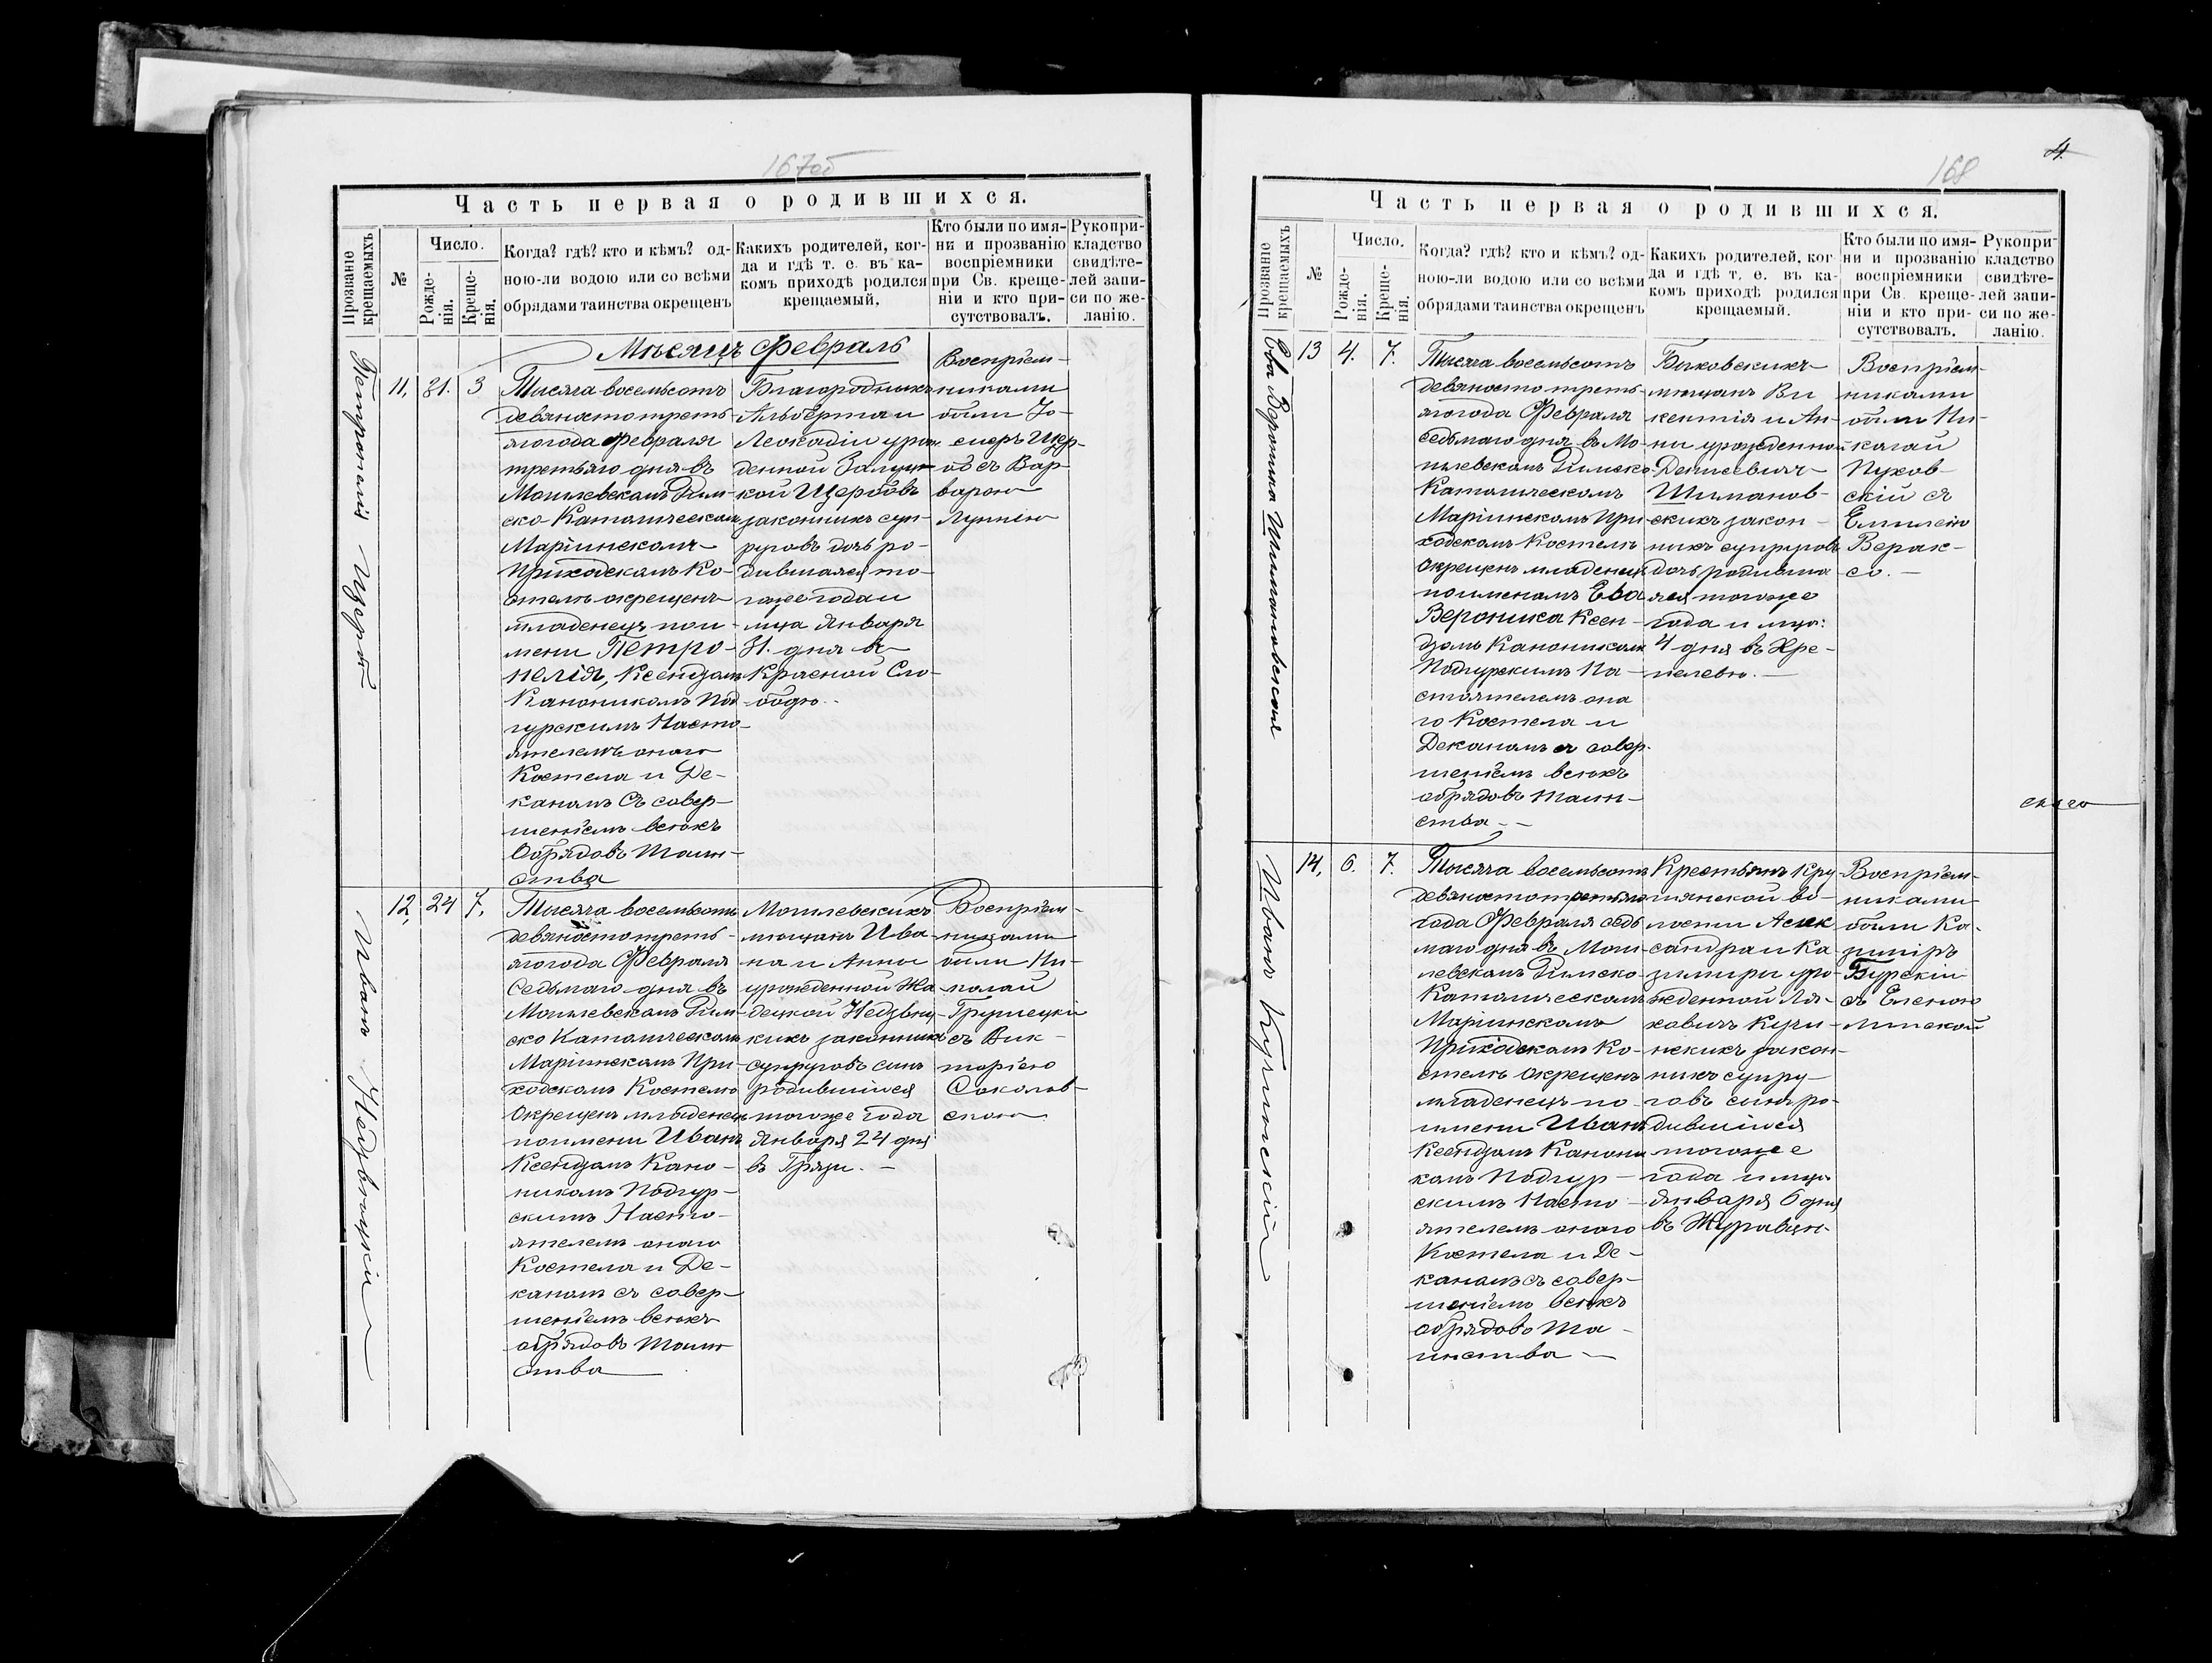 167об
Часть первая о родившихся.
Прозваніе крещаемыхъ
№
Число.
Рожденія.
Крещенія.
Когда? гдѣ? кто и кѣмъ? од-
ною-ли водою или со всѣми
обрядами таинства окрещенъ
Какихъ родителей, ког-
да и гдѣ т. е. въ ка-
комъ приходѣ родился
крещаемый.
Кто были по имя-
ни и прозванію
воспріемники
при Св. креще-
ніи и кто при-
сутствовалъ.
Рукопри-
кладство
свидѣте-
лей запи-
си по же-
ланію.
Мѣсяцъ Февраль
Петронелія Щербъ
11, 31. 3
Тысяча восемьсотъ
девяносто треть-
яго года Февраля
третьяго дня въ
Могилевскомъ Рим-
ско-Католическом
Маріинскомъ
Приходскомъ Ко-
стелѣ окрещенъ
младенецъ по и-
мени Петро-
нелія, Ксендзомъ
Каноникомъ Под-
гурскимъ Насто-
ятелемъ онаго
Костела и Де-
каномъ Съ совер-
шеніемъ всѣхъ
Обрядовъ Таин-
ства
Благородныхъ
Альберта и
Леокадіи урож
денной Залуц-
кой Щербовъ
законныхъ суп-
руговъ дочь ро-
дившаяся то-
гоже года и
м-ца Января
31. дня въ
Красной Сло-
бодѣ.
Воспріем-
никами
были Іо-
сифъ Щер-
бъ съ Вар-
варою
Лупнею
Иванъ Недзвѣцкій
12, 24 7.
Тысяча восемьсотъ
девяносто треть-
яго года Февраля
Седьмаго дня въ
Могилевскомъ Рим-
ско Католическомъ
Маріинскомъ При-
ходскомъ Костелѣ
Окрещенъ младенец
по имени Иванъ
Ксендзомъ Кано-
никомъ Подгур-
скимъ Насто-
ятелемъ онаго
Костела и Де-
каномъ съ совер-
шеніемъ всѣхъ
обрядовъ Таин
ства
Могилевскихъ
мѣщанъ Ива-
на и Анны
урожденной
Недзвѣц-
кихъ законныхъ
супруговъ сынъ
родившійся
тогоже года
Января 24 дня
въ Грязи.
Воспріем-
никами
были Ни-
колай
съ Вик-
торіею
Соколов-
скою
168
4
Часть первая о родившихся.
Прозваніе крещаемыхъ
№
Число.
Рожденія.
Крещенія.
Когда? гдѣ? кто и кѣмъ? од-
ною-ли водою или со всѣми
обрядами таинства окрещенъ
Какихъ родителей, ког-
да и гдѣ т. е. въ ка-
комъ приходѣ родился
крещаемый.
Кто были по имя-
ни и прозванію
воспріемники
при Св. креще-
ніи и кто при-
сутствовалъ.
Рукопри-
кладство
свидѣте-
лей запи-
си по же-
ланію.
Ева Вероника Шимановская
13 4. 7.
Тысяча восемьсотъ
девяносто треть-
яго года Февраля
седьмаго дня въ Мо-
гилевскомъ Римско
Католическомъ
Маріинскомъ При
ходскомъ Костелѣ
окрещенъ младенецъ
по именамъ Ева
Вероника Ксен-
дзомъ Каноникомъ
Подгурскимъ На-
стоятелемъ она
го Костела и
Деканомъ съ совер-
шеніемъ всѣхъ
обрядовъ Таин-
ства
Быховскихъ
мѣщанъ Ви
кентія и Ан-
ны урожденной
Денисевичъ
Шиманов-
скихъ закон-
ныхъ супруговъ
дочь родивша
яся тогоже
года и м-ца:
4 дня въ Хре-
пелевѣ.
Воспріем-
никами
были Ни-
колай
Пухов-
скій съ
Емилею
Верак-
со.
Иванъ Кучинскій
14, 6. 7.
Тысяча восемьсотъ
девяносто третьяго
года Февраля седь
маго дня въ Моги
левскомъ Римско
Католическомъ
Маріинскомъ
Приходскомъ Ко-
стелѣ Окрещенъ
младенецъ по
имени Иванъ
Ксендзомъ Канони
комъ Подгур-
скимъ Насто-
ятелемъ онаго
Костела и Де-
каномъ съ совер-
шеніемъ всѣхъ
обрядовъ Та-
инства
Крестьянъ Кру
глянской во-
лости Алек
сандра и Ка
зимиры уро-
жденной Ля-
ховичъ Кучи-
нскихъ закон-
ныхъ супру-
говъ сынъ ро-
дившійся
тогоже
года и м-ца
Января 6 дня
въ Журавцѣ.
Воспріем-
никами
были Ка-
зиміръ
Бурскій
съ Еленою
Липской